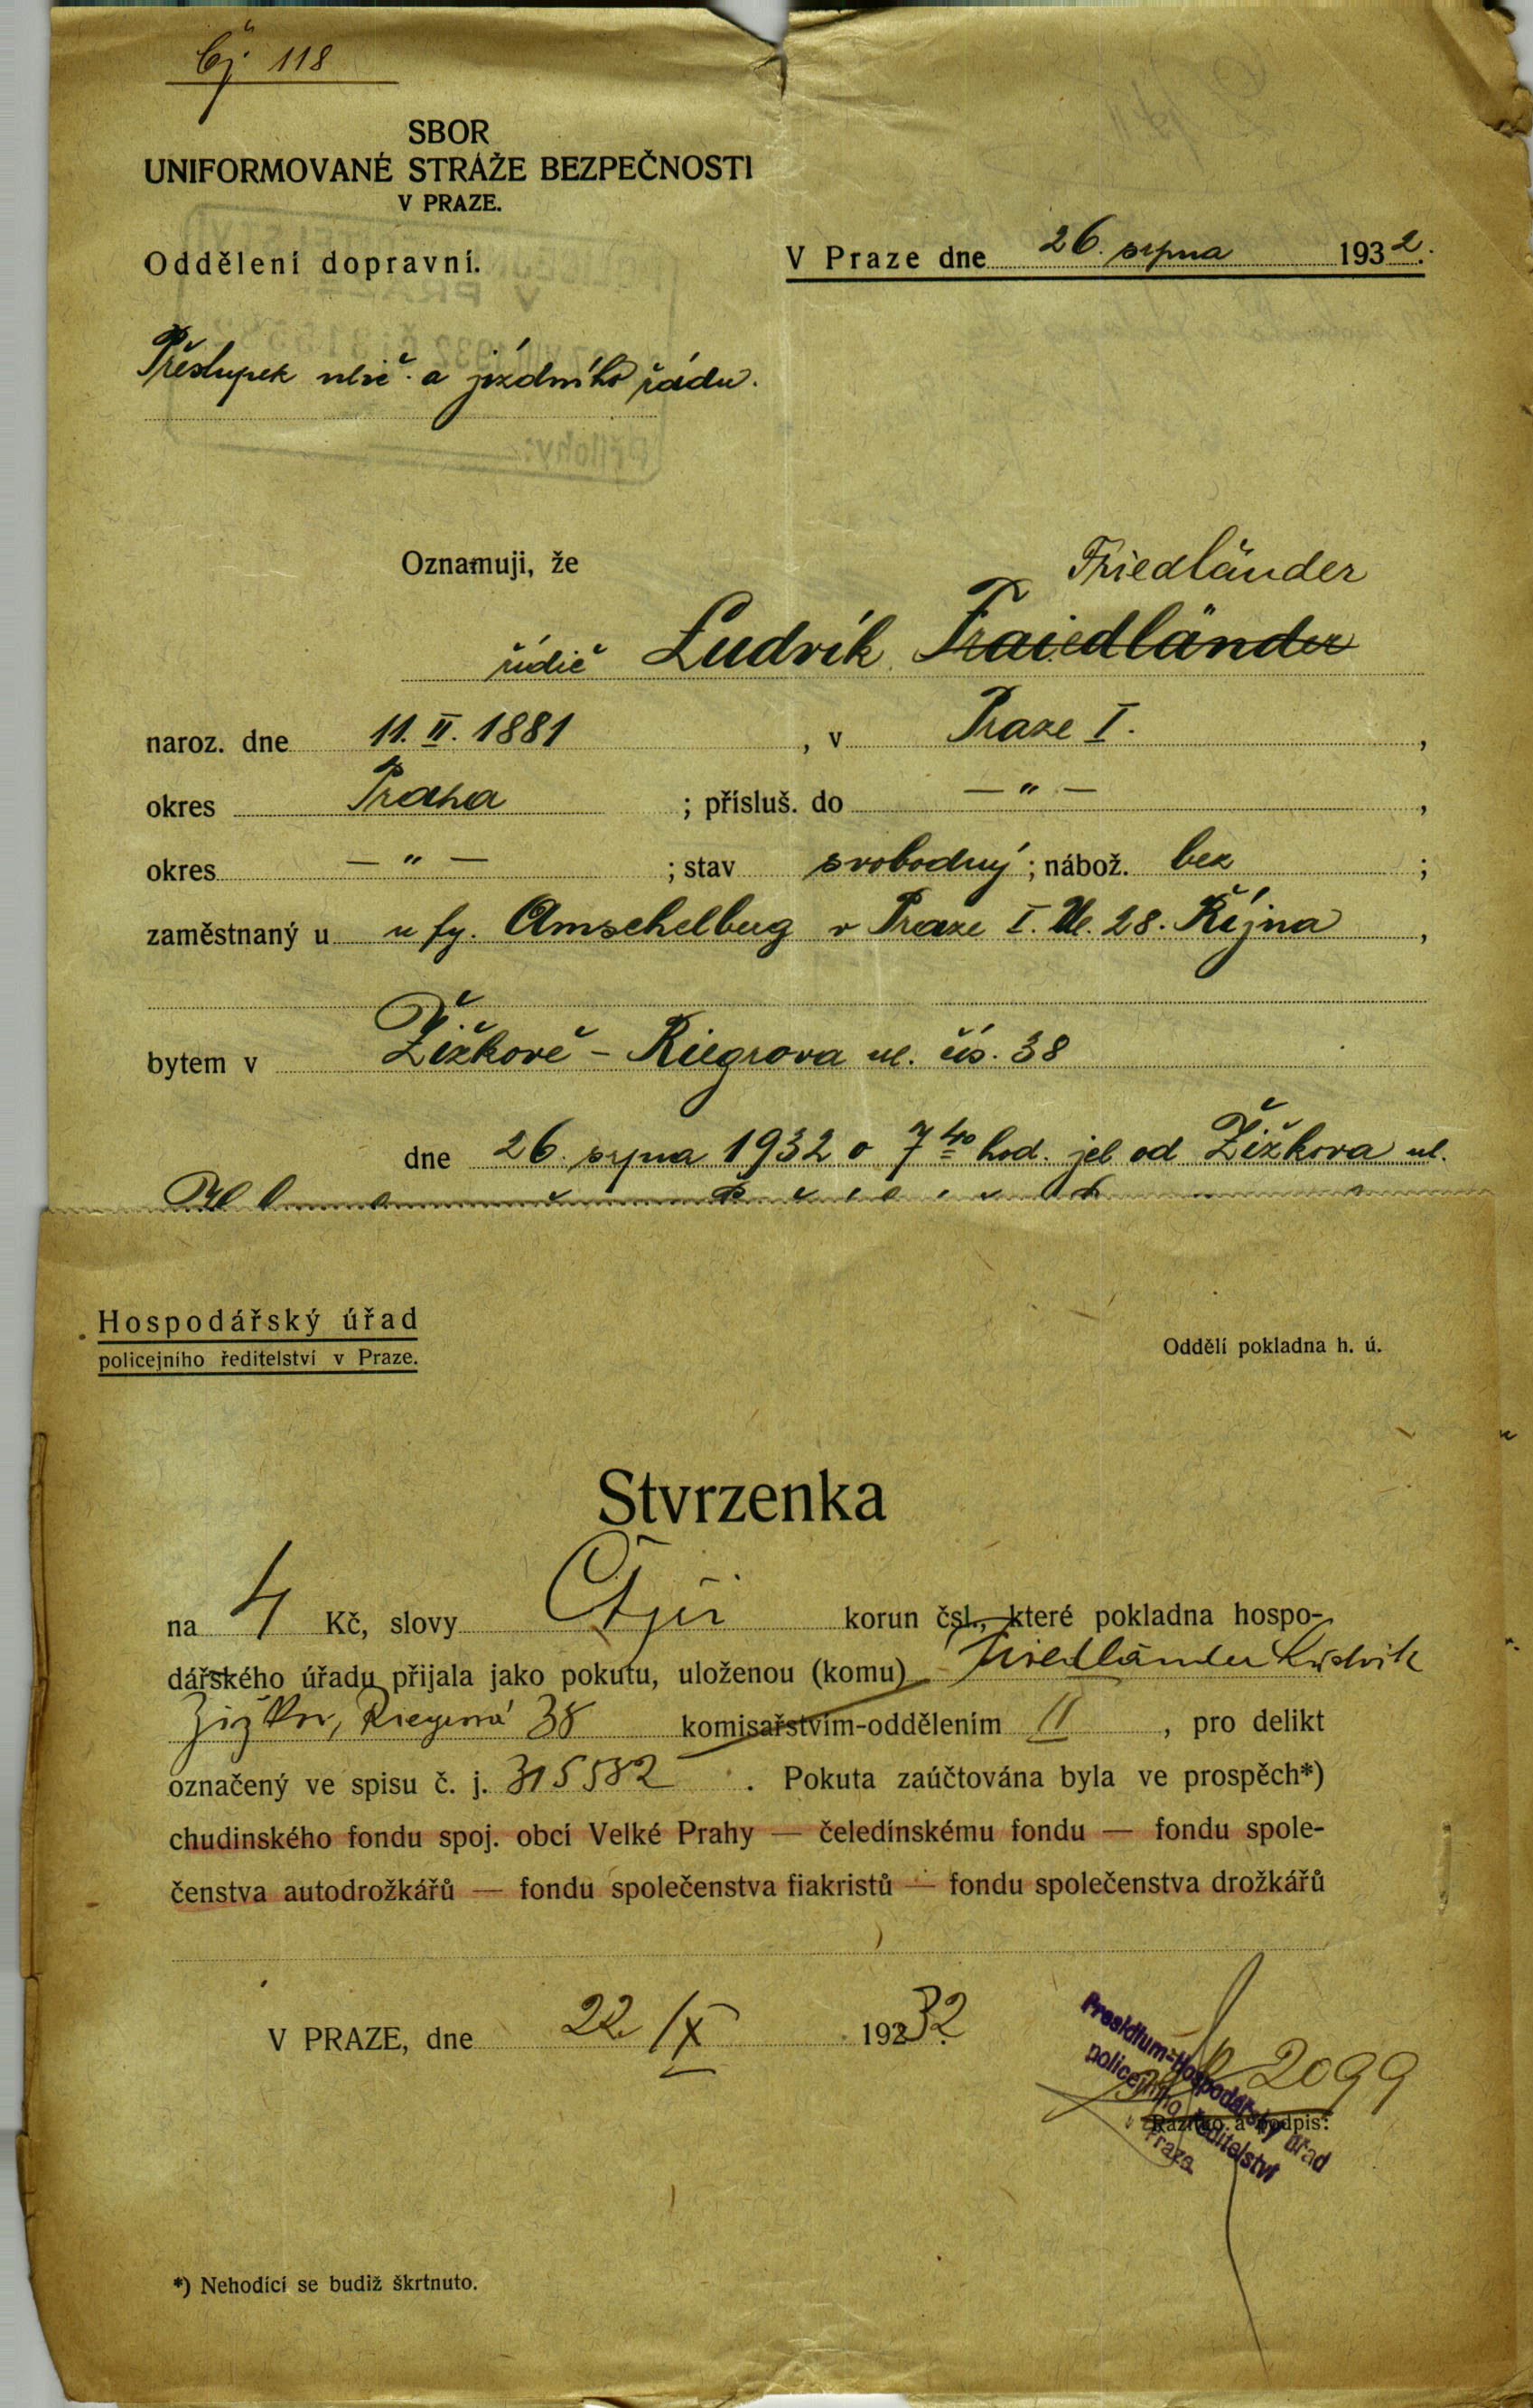 Čj 118
SBOR
UNIFORMOVANÉ STRÁŽE BEZPEČNOSTI
V PRAZE.
Oddělení dopravní.
V Praze dne 26. srpna 1932.
Přestupek ulič. a jízdního řádu.
Přílohy:
Oznamuji, že
Friedländer
řidič Ludvík Fraiedländer
naroz. dne 11. II. 1881, v Praze I.,
okres Praha; přísluš. do — " —,
okres — " —; stav svobodný; nábož. bez;
zaměstnaný u u fy. Amschelberg v Praze I. Ul. 28. Října,
bytem v Žižkově - Riegrova ul. čís. 38
dne 26. srpna 1932 o 7 40 hod. jel od Žižkova ul.
Hospodářský úřad
policejního ředitelství v Praze.
Oddělí pokladna h. ú.
Stvrzenka
na 4 Kč, slovy Čtyři korun čsl., které pokladna hospo-
dářského úřadu přijala jako pokutu, uloženou (komu) Friedländer Ludvík
Žižkov, Riegrova 38 komisařstvím-oddělením II, pro delikt
označený ve spisu č. j. 315582. Pokuta zaúčtována byla ve prospěch*)
chudinského fondu spoj. obcí Velké Prahy — čeledínskému fondu — fondu spole-
čenstva autodrožkářů — fondu společenstva fiakristů — fondu společenstva drožkářů
V PRAZE, dne 22. IX 192 32.
2099
Presidium-Hospodářský úřad
policejního ředitelství
Praza
Razítko a podpis:
*) Nehodící se budiž škrtnuto.